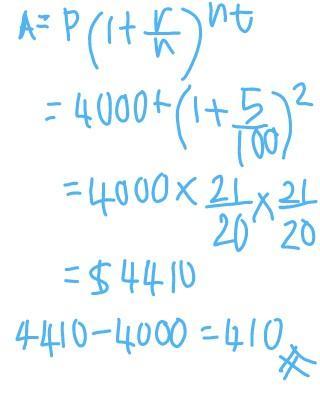 A = P (1 + r/n)^nt
= 4000 + (1 + 5/100)^2
= 4000 × 21/20 × 21/20
= $ 4410
4410 - 4000 = 410 //